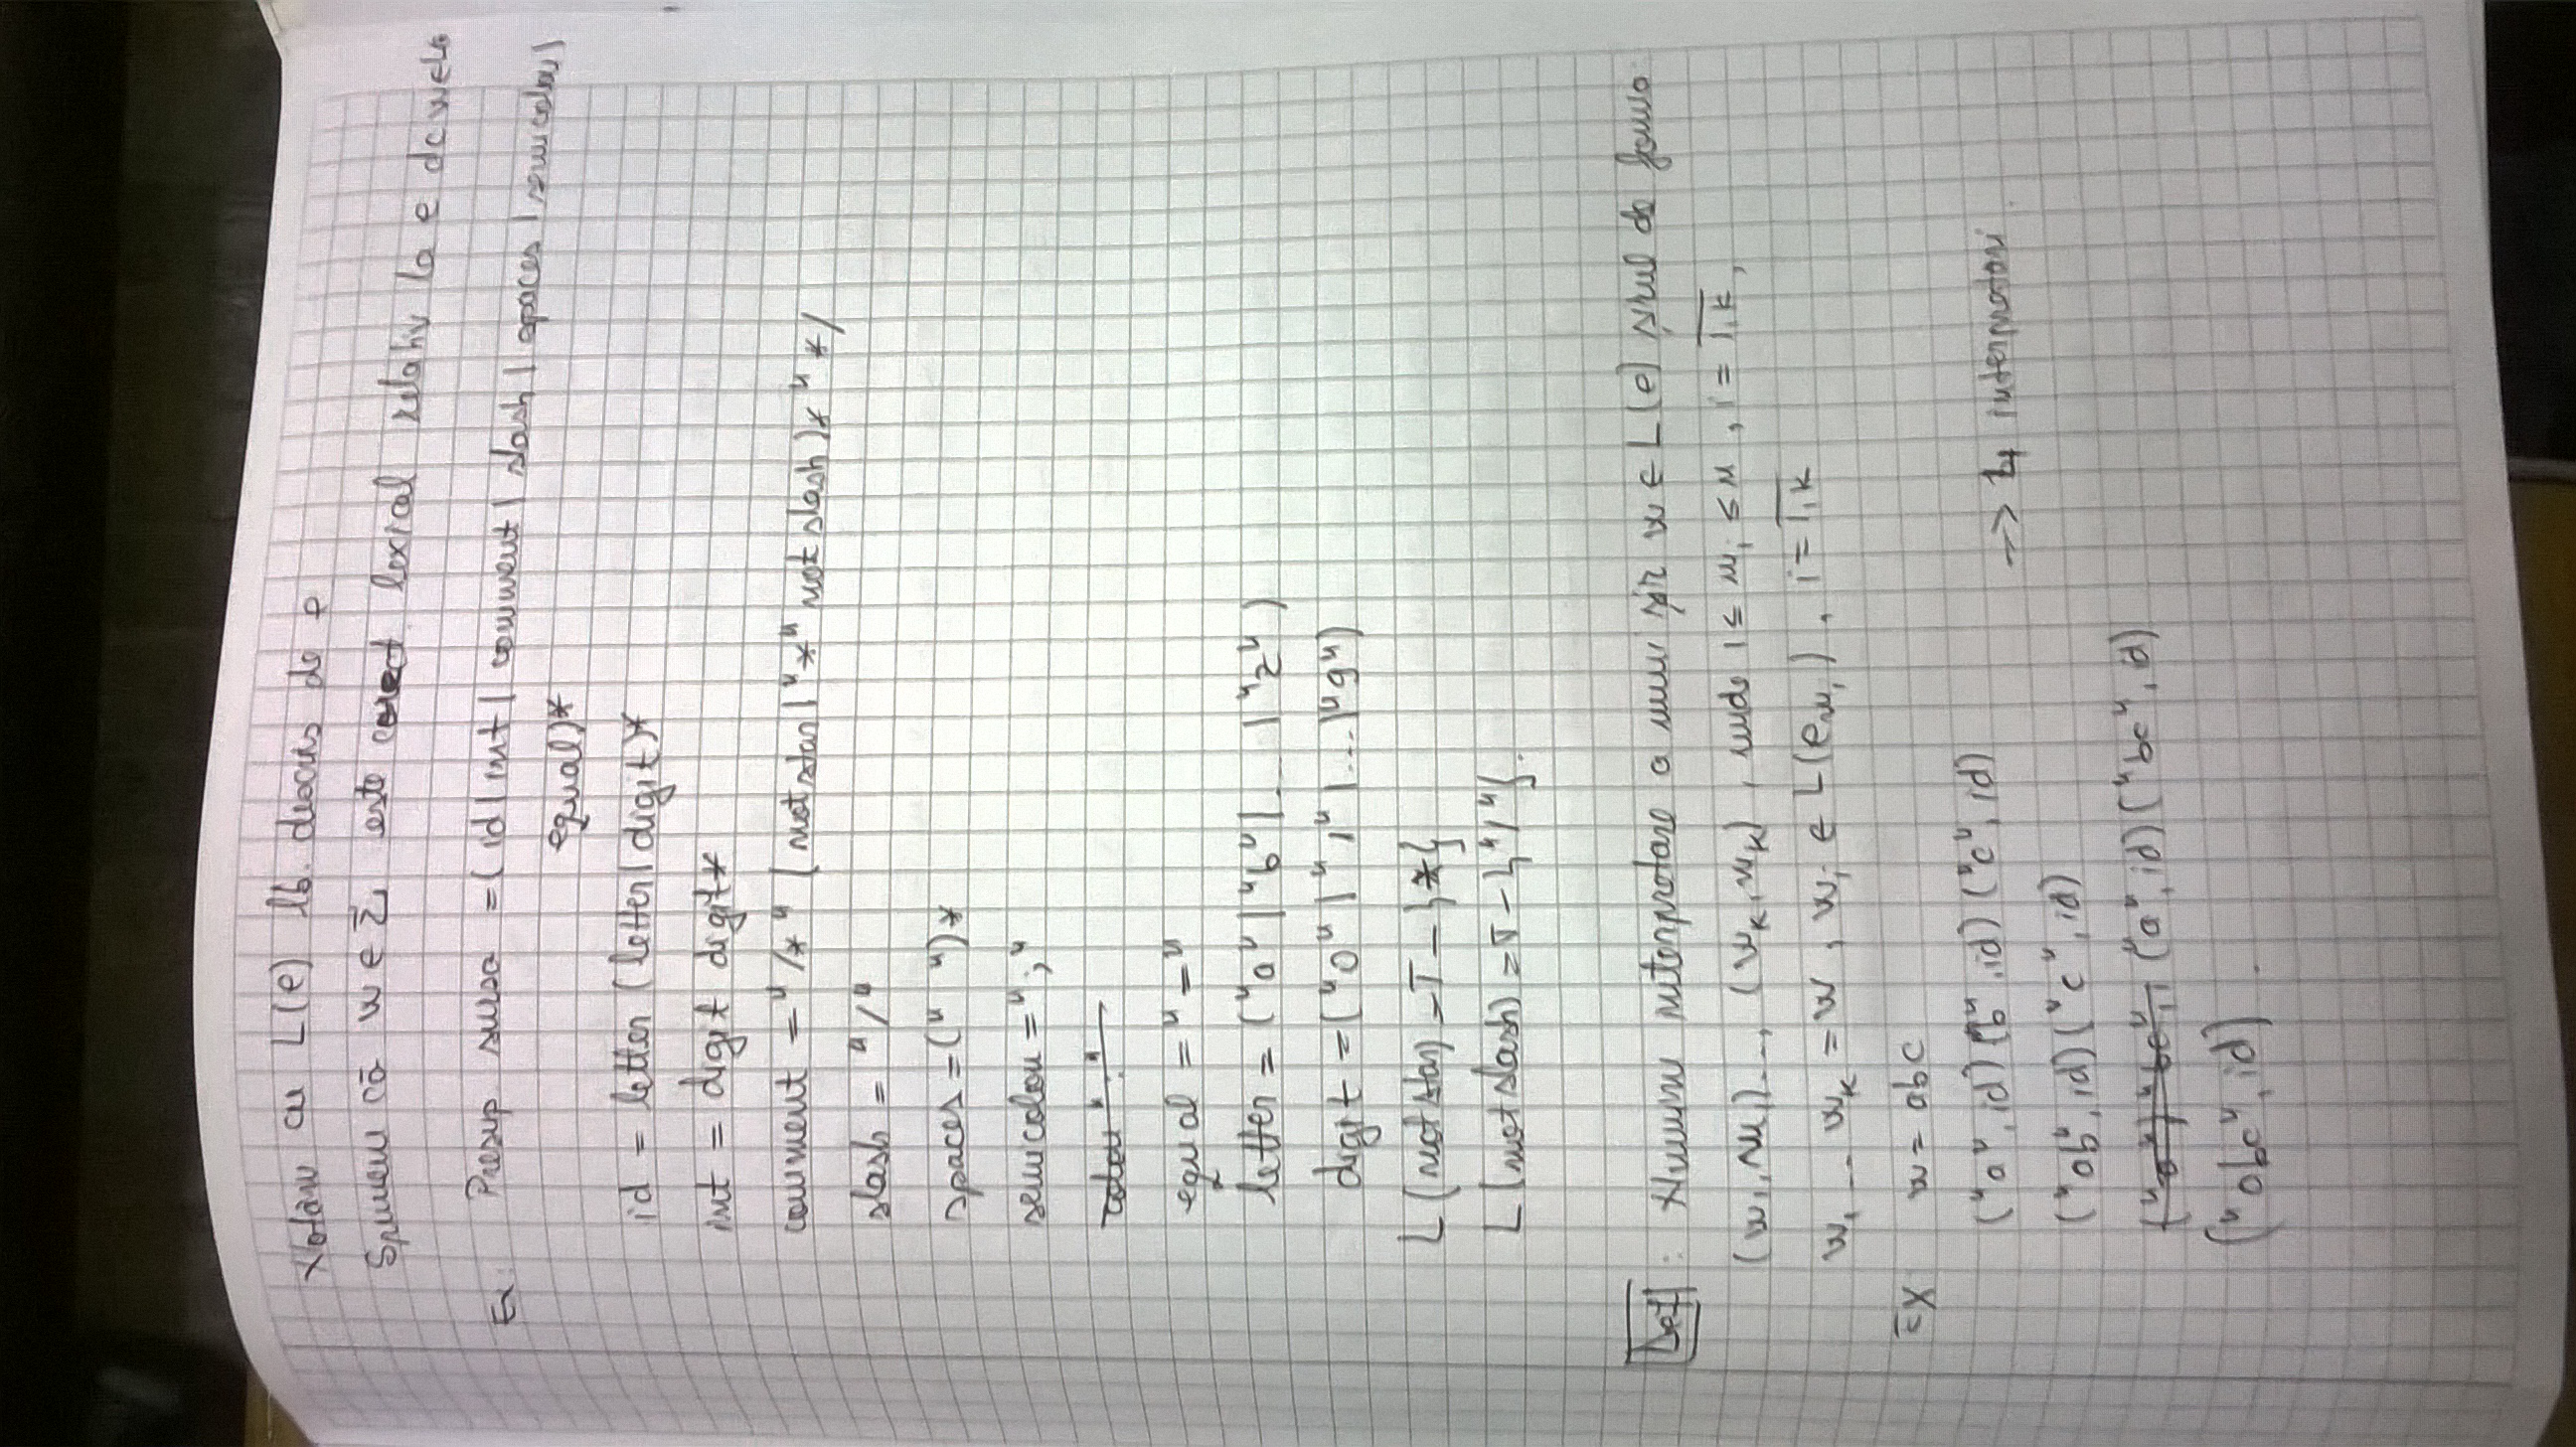 Notăm cu L(e) lb. descris de e
Spunem că w ∈ Σ este corect lexical relativ la e dc w∈L(e)
Ex: Presup sursa = ( id | int | comment | slash | spaces | semicolon |
equal)*
id = letter (letter | digit)*
int = digit digit*
comment = "/*" (notstar | "*" notslash)* "*/
slash = "/"
spaces = (" ")*
semicolon = ";"
colon ":"
equal = "="
letter = ("a" | "b" | ... | "z")
digit = ("0" | "1" | ... | "9")
L (notstar) = Σ - {*}
L (notslash) = Σ - {"/"}.
Def: Numim interpretare a unui șir w ∈ L(e) șirul de forma
(w₁, m₁) ..., (wₖ, mₖ), unde 1 ≤ mᵢ ≤ n, i = 1,k,
w₁ ... wₖ = w, wᵢ ∈ L(e mᵢ), i = 1,k
Ex w = abc
("a", id) ("b", id) ("c", id) -> 4 interpretari
("ab", id) ("c", id)
("a") "bc", ("a", id) ("bc", id)
("abc", id).